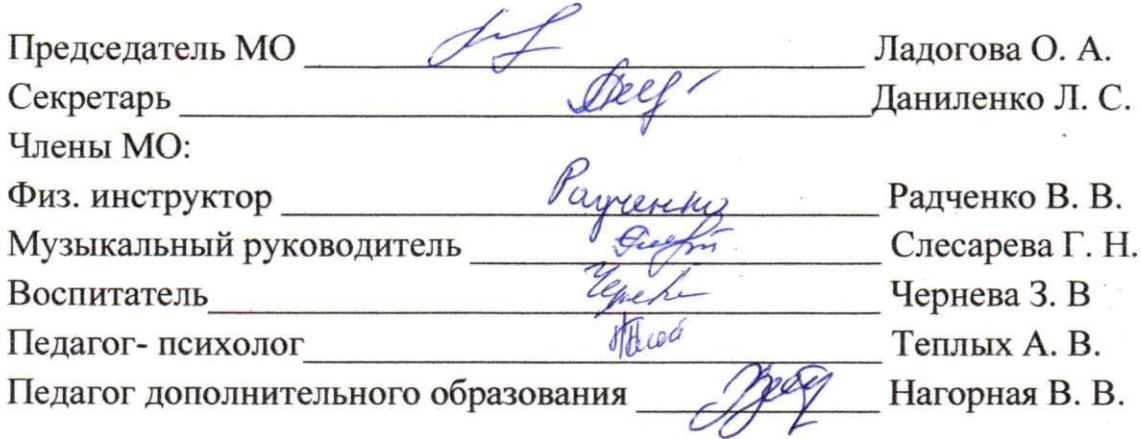 Председатель МО Ладогова О. А.
Секретарь Даниленко Л. С.
Члены МО:
Физ. инструктор Радченко Радченко В. В.
Музыкальный руководитель Слесарева Г. Н.
Воспитатель Чернева З. В
Педагог- психолог Теплых А. В.
Педагог дополнительного образования Нагорная В. В.